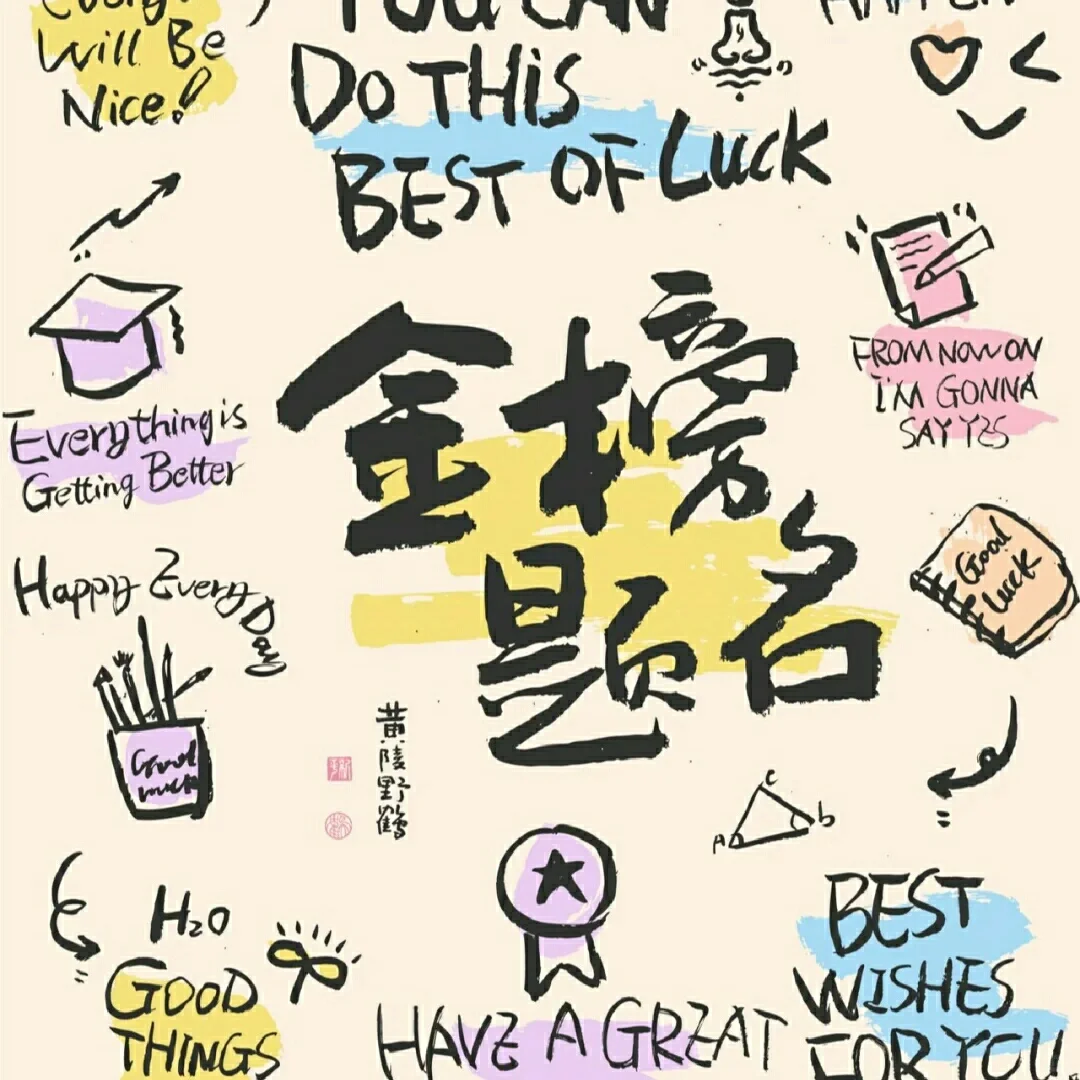 Will Be
Nice!
YOU CAN
DO THIS
BEST OF LUCK
Everything is
Getting Better
FROM NOW ON
I'M GONNA
SAY YES
金榜
题名
Happy Every Day
Good
Luck
黄陵野鹤
A
C
b
H2O
GOOD
THINGS
HAVE A GREAT
BEST
WISHES
FOR YOU